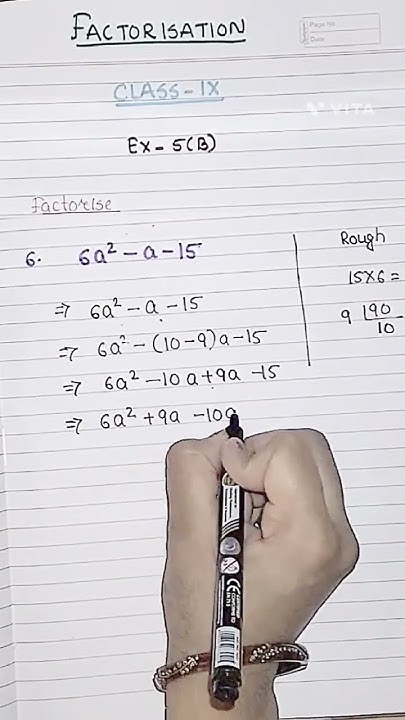 FACTORISATION
Page No
Date
CLASS-IX
VITA
Ex-5(B)
Factorise
6. 6a² - a - 15
⇒ 6a² - a - 15
⇒ 6a² - (10-9)a - 15
⇒ 6a² - 10a + 9a - 15
⇒ 6a² + 9a - 10a
Rough
15×6=
9 |90
10
CE